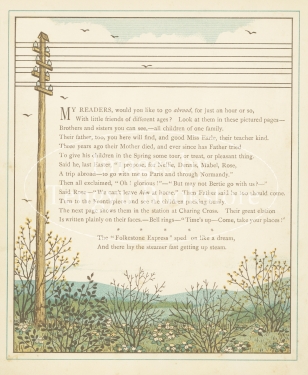 MY READERS, would you like to go abroad, for just an hour or so,
With little friends of different ages? Look at them in these pictured pages—
Brothers and sisters you can see,—all children of one family.
Their father, too, you here will find, and good Miss Earle, their teacher kind.
Three years ago their Mother died, and ever since has Father tried
To give his children in the Spring some tour, or treat, or pleasant thing.
Said he, last Easter, "I propose, for Nellie, Dennis, Mabel, Rose,
A trip abroad—to go with me to Paris and through Normandy."
Then all exclaimed, "Oh! glorious!"—"But may not Bertie go with us?"—
said Rose—"We can't leave him at home." Then Father said he too should come.
Turn to the and see the children
The next page shows them in the station at Charing Cross. Their great elation
Is written plainly on their faces.—Bell rings—"Time's up—Come, take your places!"
The "Folkestone Express" sped on like a dream,
And there lay the steamer fast getting up steam.